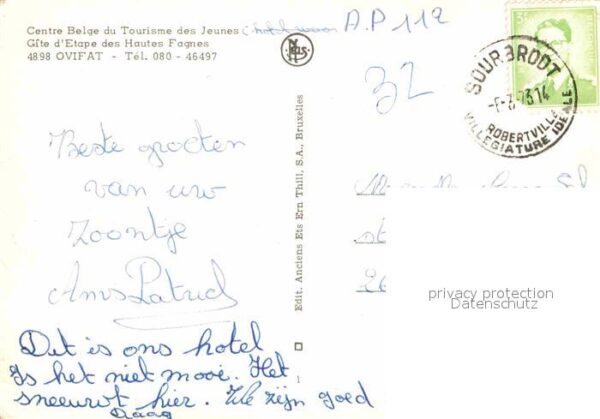 Centre Belge du Tourisme des Jeunes
A.P 112
Gîte d'Etape des Hautes Fagnes
4898 OVIFAT - Tél. 080 - 46497
32
SOURBRODT
ROBERTVILLE
VILLEGIATURE IDEALE
Beste groeten
van uw
zoontje
Edit. Anciens Ets Ern Thill, S.A., Bruxelles
privacy protection
Datenschutz
Dit is ons hotel
Is het niet mooi. Het
sneeuwt hier. We zijn goed
Daag